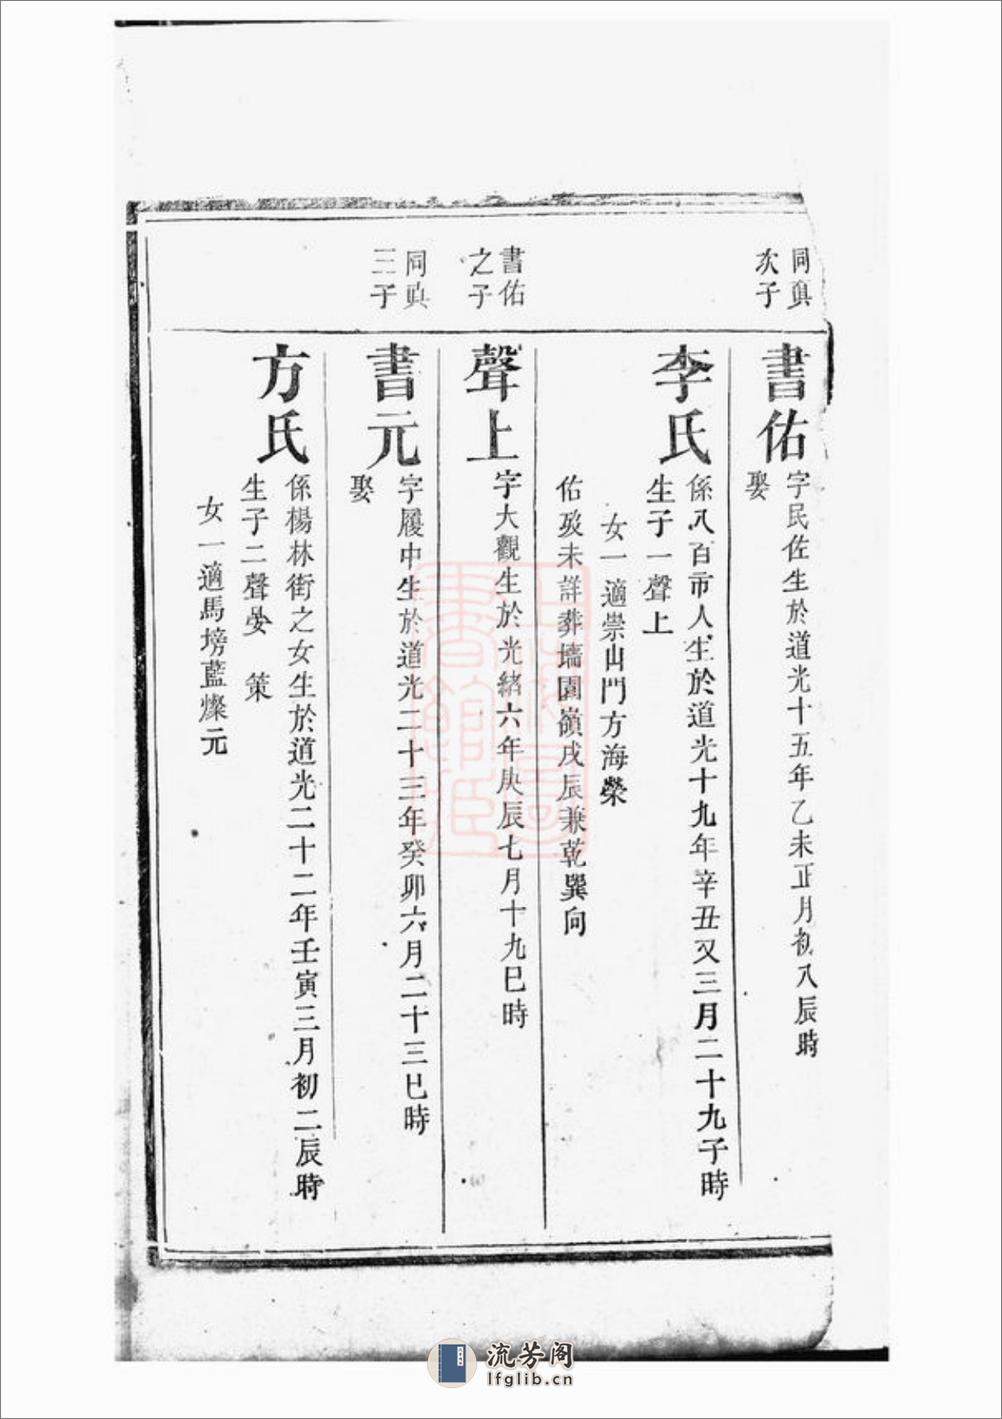 同真
次子
書佑
字民佐生於道光十五年乙未正月初八辰時
娶
李氏
係八百市人生於道光十九年辛丑又三月二十九子時
生子一聲上
女一適崇山門方海榮
佑歿未詳葬墻園嶺戌辰兼乾巽向
書佑
之子
聲上
字大觀生於光緒六年庚辰七月十九巳時
同真
三子
書元
字履中生於道光二十三年癸卯六月二十三巳時
娶
方氏
係楊林街之女生於道光二十二年壬寅三月初二辰時
生子二聲晏 策
女一適馬塝藍燦元
流芳阁
lfglib.cn